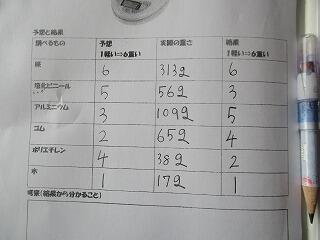 予想と結果
調べるもの 予想 実際の重さ 結果
1軽い⇒6重い 1軽い⇒6重い
鉄 6 313g 6
塩化ビニール 5 56g 3
アルミニウム 3 109g 5
ゴム 2 65g 4
ポリエチレン 4 38g 2
木 1 17g 1
考察(結果から分かること)